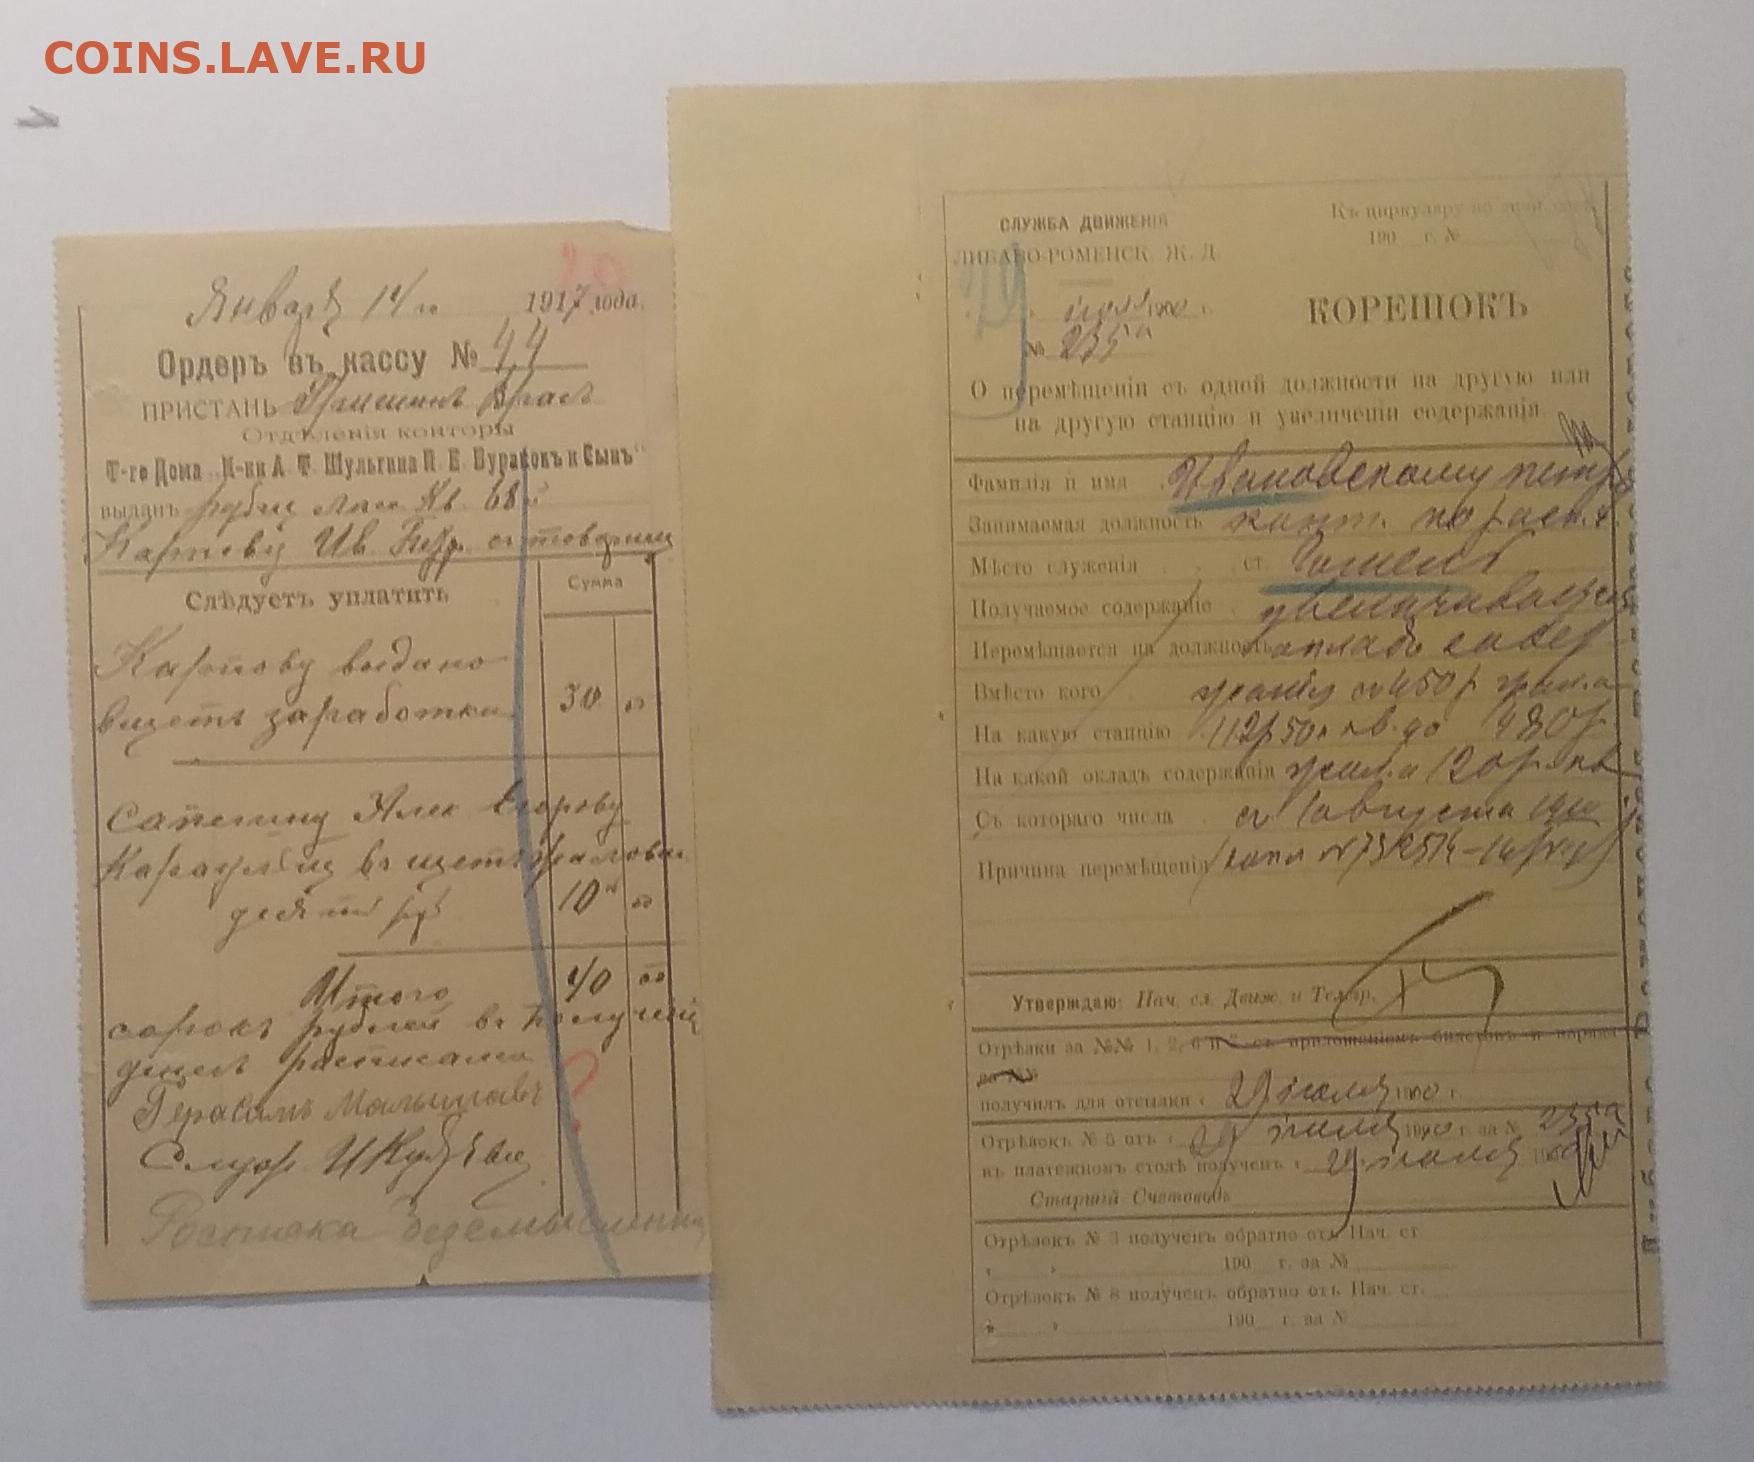 COINS.LAVE.RU
20
Января 14го 1917 года.
Ордеръ въ кассу № 44
ПРИСТАНЬ
Отдѣленія конторы
Т-го Дома „Н-ки А. Т. Шульгина П. Е. Бураковъ и Сынъ"
выданъ 68
Карпову Ив. с товарищ
Слѣдуетъ уплатить
Сумма
Карпову выдано
вщетъ заработки 30
Сапегину Алек Егорову
Караульщ в щетъ жалован
десять руб 10
Итого 40
сорокъ рублей в получении
денегъ расписался
Герасимъ Малышавъ
Служ.
Росписка безсмысленна
СЛУЖБА ДВИЖЕНІЯ
ЛИБАВО-РОМЕНСК. Ж. Д.
Къ циркуляру по
190 г. №
29 іюля 1900 г.
№ 235а
КОРЕШОКЪ
О перемѣщеніи съ одной должности на другую или
на другую станцію и увеличеніи содержанія
Фамилія и имя Ивановскому Петру
Занимаемая должность конт.
Мѣсто служенія ст. Гомель
Получаемое содержаніе увеличивается
Перемѣщается на должность окладъ содер
Вмѣсто кого жанія съ 450р жал. и
На какую станцію 112р 50к кв. до 480р
На какой окладъ содержанія жал. и 120р. кв
Съ котораго числа съ 1 августа 1900
Причина перемѣщенія
Утверждаю: Нач. сл. Движ. и Телгр.
Отрѣзки за №№ 1, 2, 6 и 7 съ приложеніемъ билетовъ и наряда
за №№
получилъ для отсылки « 29 іюля 1900 г.
Отрѣзокъ № 5 отъ « 29 іюля 1900 г. за № 235а
въ платежномъ столѣ полученъ « 29 іюля 1900
Старшій Счетоводъ
Отрѣзокъ № 3 полученъ обратно отъ Нач. ст
190 г. за №
Отрѣзокъ № 8 полученъ обратно отъ Нач. ст.
190 г. за №